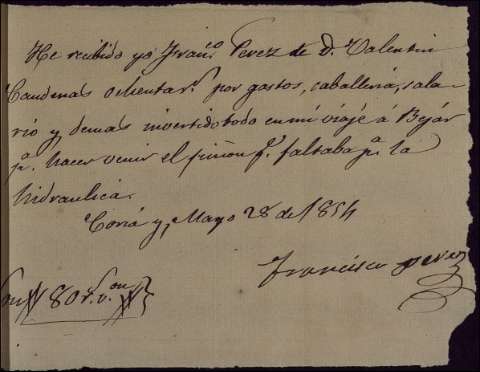 He recibido yo Franco. Perez de D. Valentin
Candenas ochenta r.s por gastos, caballeria, sala-
rio y demas invertido todo en mi viaje á Bejár
p.a hacer venir el piñon q.e faltaba p.a la
hidraulica.
Coria y, Mayo 28 de 1854
Francisco perez
Son # 80 r.s v.on #